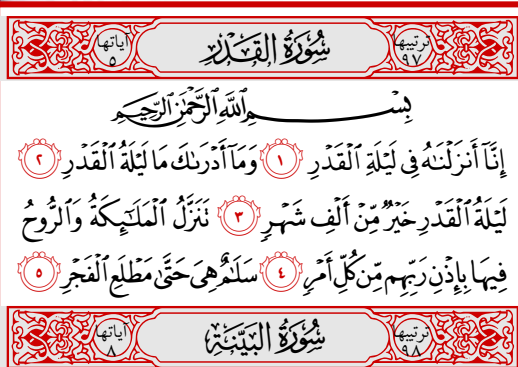 ترتيبها ٩٧ سُورَةُ القَدْرِ آياتها ٥
بِسْمِ ٱللَّهِ ٱلرَّحْمَٰنِ ٱلرَّحِيمِ
إِنَّآ أَنزَلْنَٰهُ فِى لَيْلَةِ ٱلْقَدْرِ ١ وَمَآ أَدْرَىٰكَ مَا لَيْلَةُ ٱلْقَدْرِ ٢
لَيْلَةُ ٱلْقَدْرِ خَيْرٌ مِّنْ أَلْفِ شَهْرٍ ٣ تَنَزَّلُ ٱلْمَلَٰٓئِكَةُ وَٱلرُّوحُ
فِيهَا بِإِذْنِ رَبِّهِم مِّن كُلِّ أَمْرٍ ٤ سَلَٰمٌ هِىَ حَتَّىٰ مَطْلَعِ ٱلْفَجْرِ ٥
ترتيبها ٩٨ سُورَةُ البَيِّنَةِ آياتها ٨